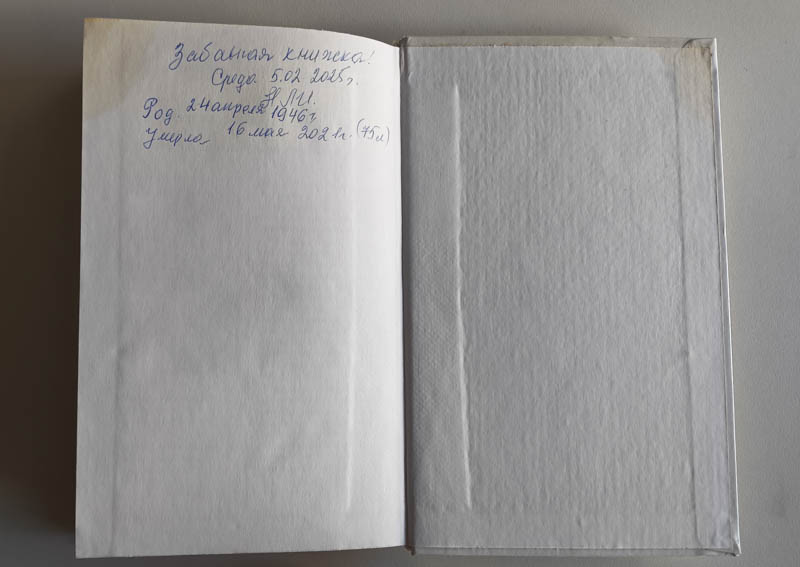 Забавная книжка!
Среда 5.02 2025г.
Род. 24 апреля 1946г.
Умерла 16 мая 2021г. (75л)